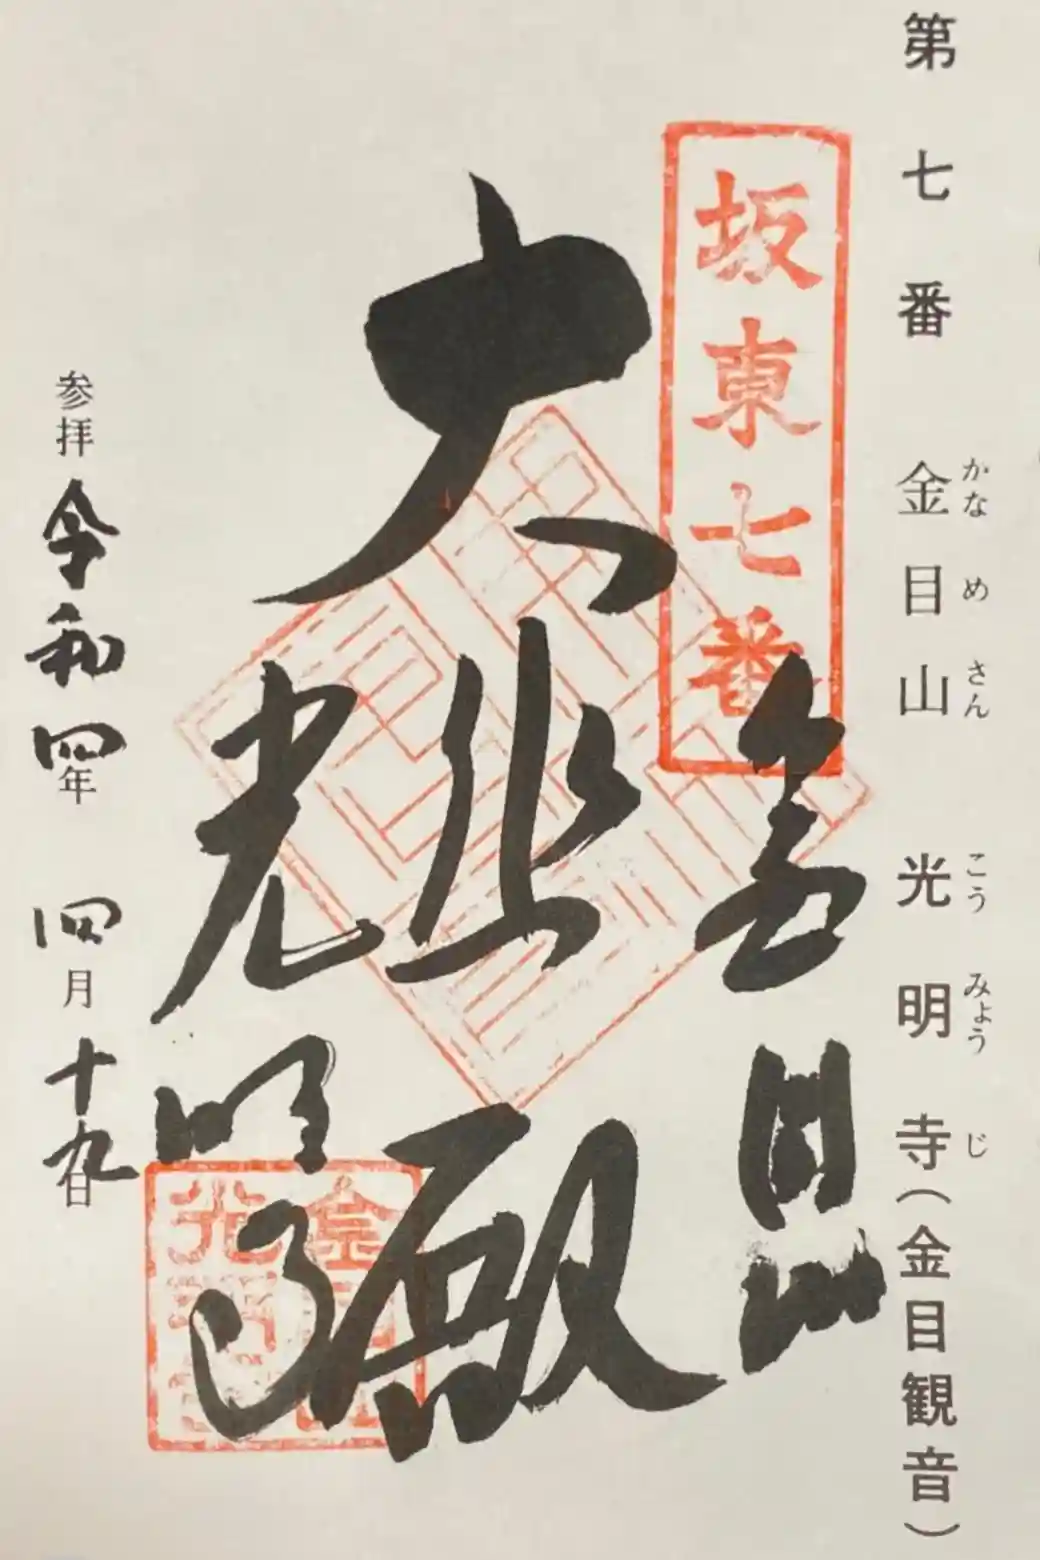 第七番 金目山 光明寺(金目観音)
かなめさん こうみょうじ
坂東七番
金目山
大悲殿
光明寺
参拝 令和四年 四月十九日